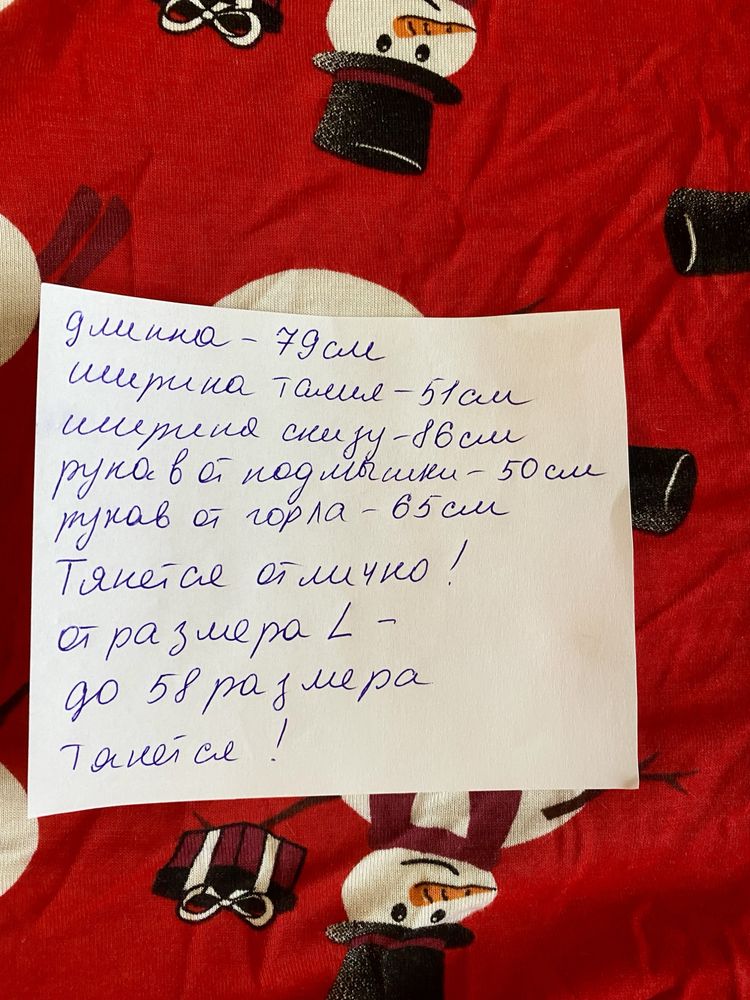 длинна - 79см
ширина талия - 51см
ширина снизу - 86см
рукав от подмышки - 50см
рукав от горла - 65см
Тянется отлично!
от размера L -
до 58 размера
тянется!